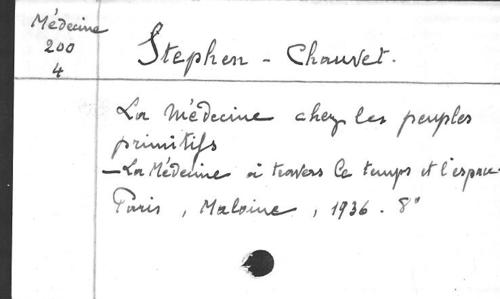 Médecine
200
4
Stephen - Chauvet.
La Médecine chez les peuples
primitifs
- La Médecine à travers le temps et l'espace
Paris, Maloine, 1936. 8°